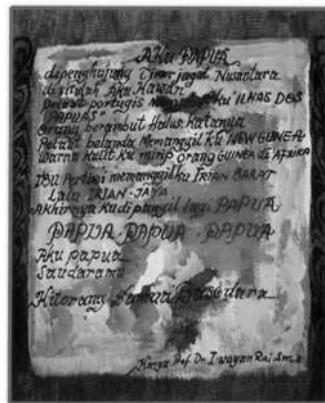 AKU PAPUA
dipenghujung Timur jagat Nusantara
di situlah Aku Kawan
Pelaut portugis ku "ILHAS DOS
PAPUAS"
Orang berambut Halus, katanya
Pelaut belanda Memanggil Ku NEW GUINEA
warna kulit ku mirip orang GUINEA di AFRIKA
Ibu Pertiwi memanggilku IRIAN BARAT
Lalu IRIAN-JAYA
Akhirnya Ku dipanggil lagi PAPUA
PAPUA - PAPUA - PAPUA
Aku papua
Saudaramu
Kitorang Samua Basudara
Karya Prof. Dr. I wayan Rai S. M.A